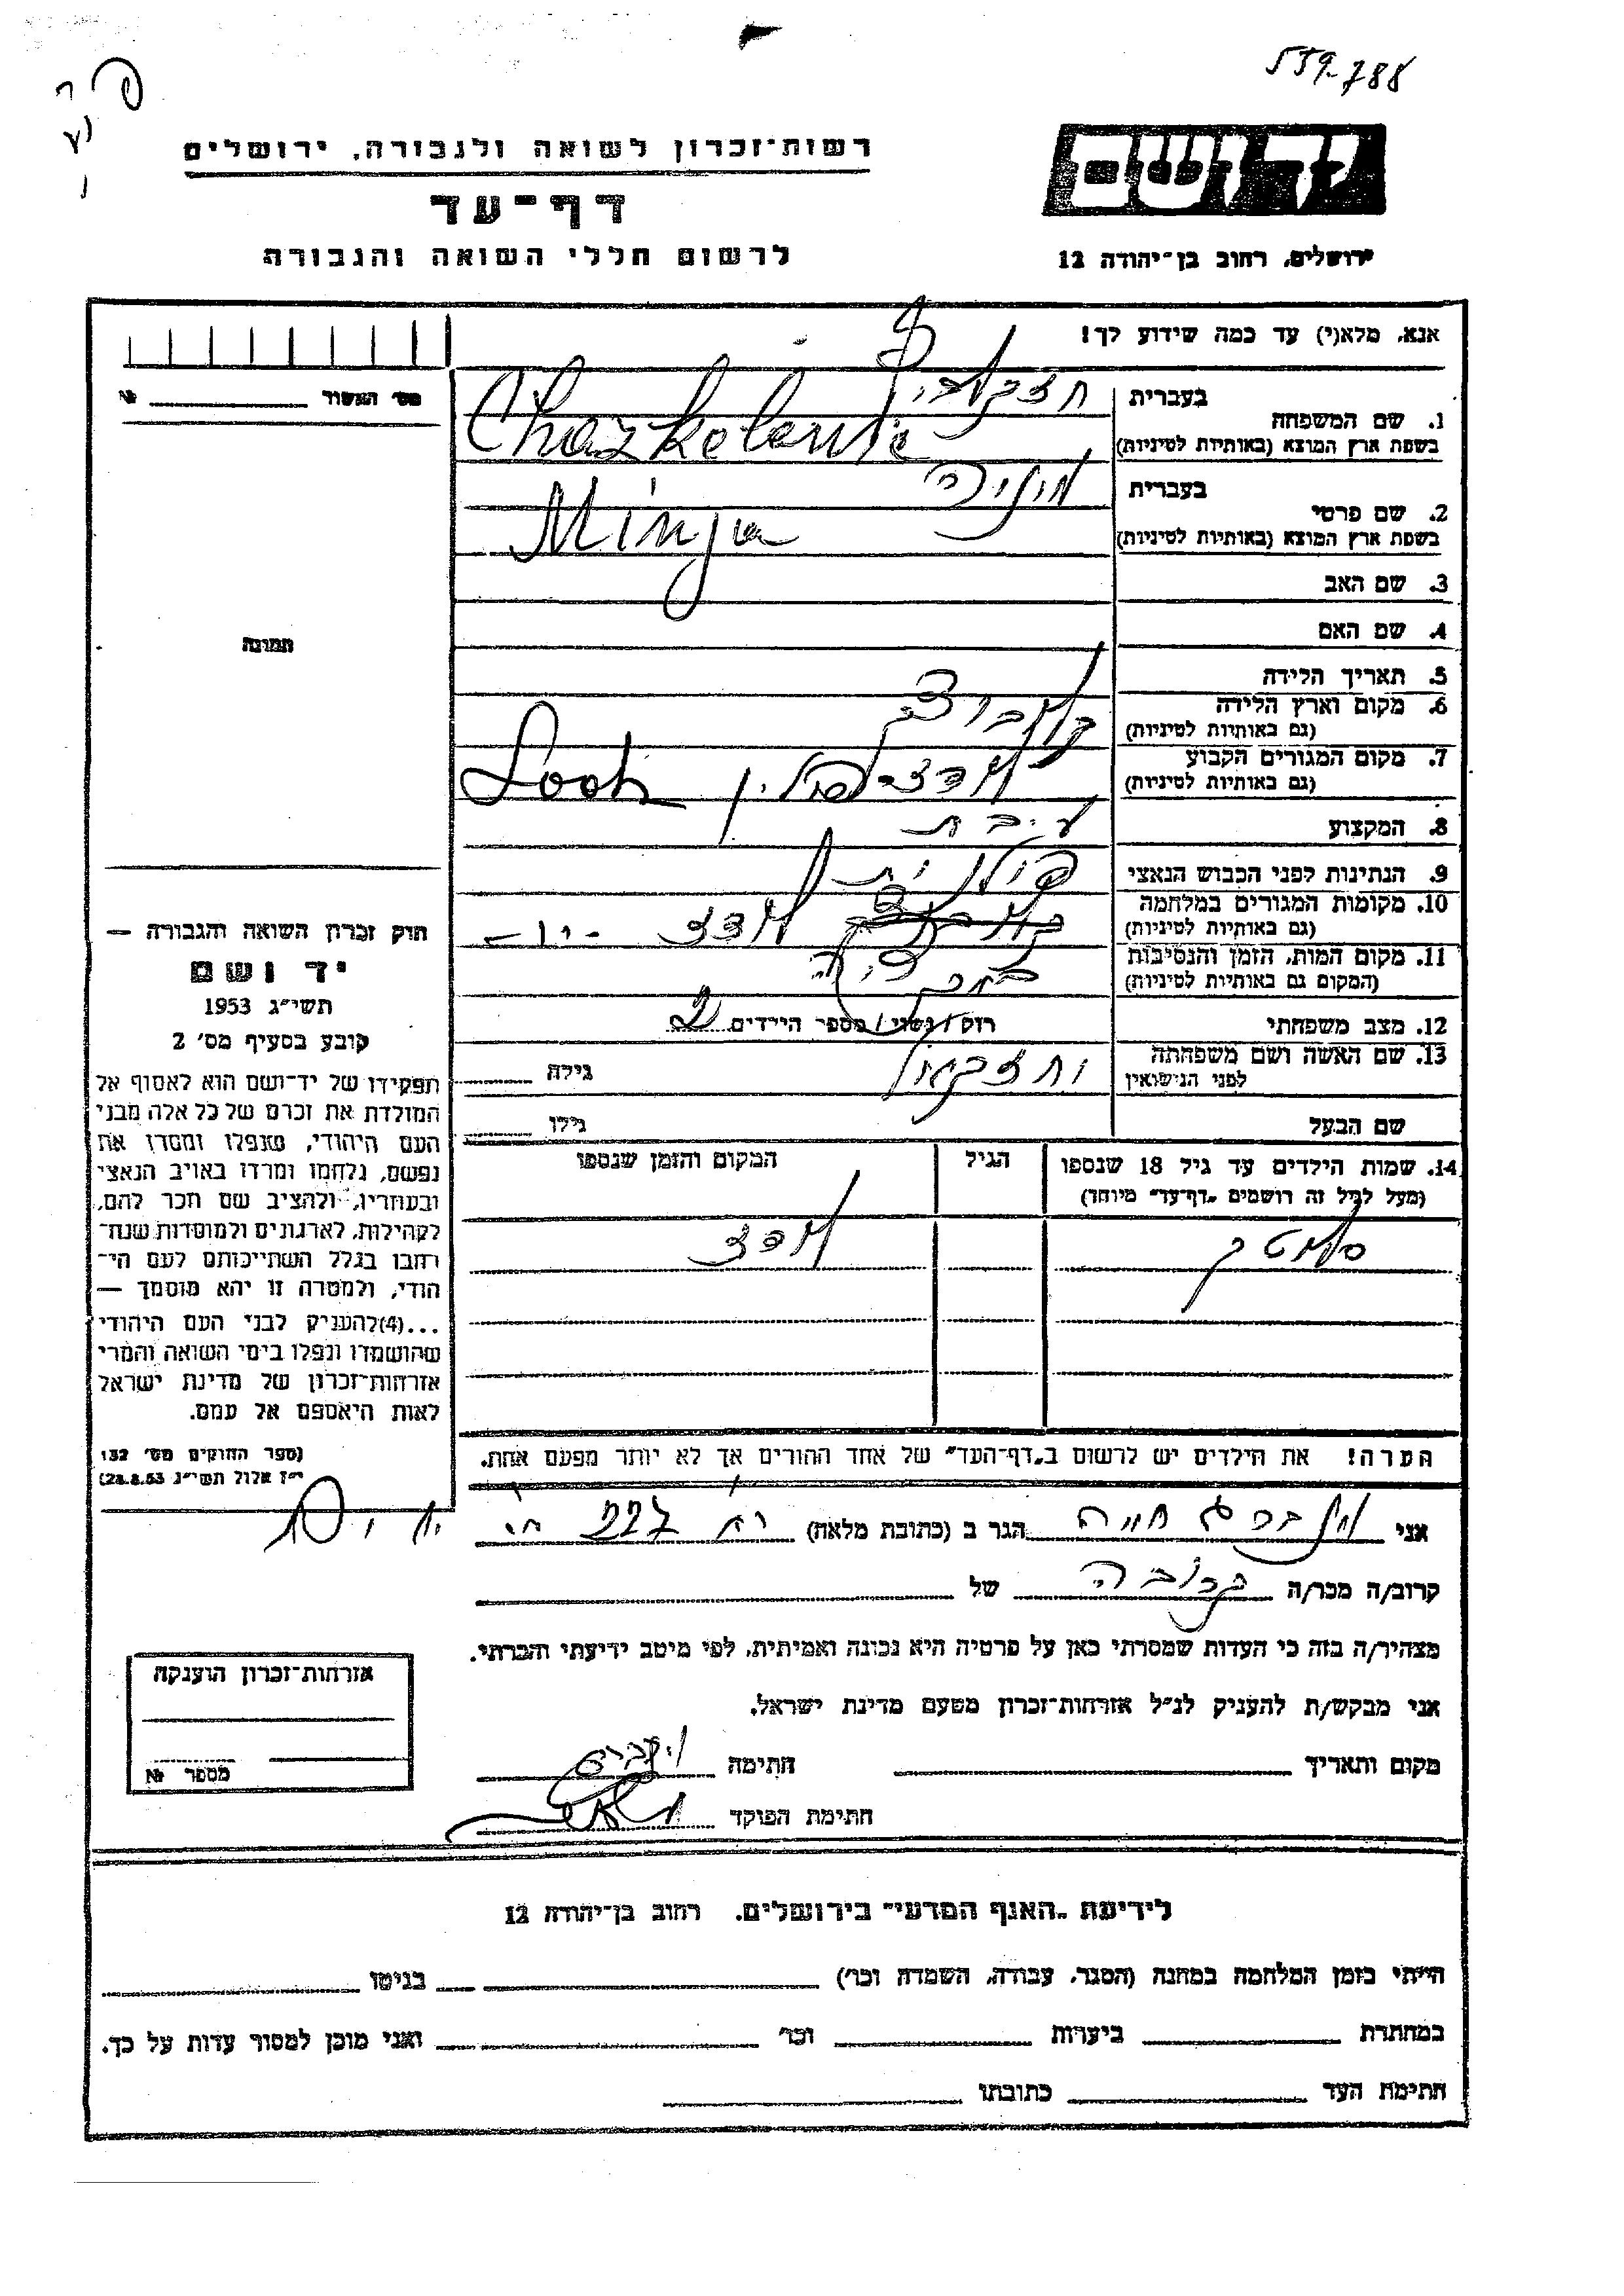 559-788
רשות־זכרון לשואה ולגבורה, ירושלים
דף־עד
לרשום חללי השואה והגבורה
ידושם
ירושלים, רחוב בן־יהודה 12
אנא, מלא(י) עד כמה שידוע לך!
מס׳ האשור №
1. שם המשפחה
בעברית
בשפת ארץ המוצא (באותיות לטיניות)
2. שם פרטי
בעברית מיניה
בשפת ארץ המוצא (באותיות לטיניות) Minja
3. שם האב
4. שם האם
5. תאריך הלידה
6. מקום וארץ הלידה
(גם באותיות לטיניות)
7. מקום המגורים הקבוע
(גם באותיות לטיניות) לודז פולין
8. המקצוע
9. הנתינות לפני הכבוש הנאצי פולנית
10. מקומות המגורים במלחמה
(גם באותיות לטיניות) לודז
11. מקום המות, הזמן והנסיבות
(המקום גם באותיות לטיניות)
12. מצב משפחתי רוק / נשוי / מספר הילדים 2
13. שם האשה ושם משפחתה
לפני הנישואין
גילה
שם הבעל
גילו
14. שמות הילדים עד גיל 18 שנספו
(מעל לגיל זה רושמים „דף־עד״ מיוחד)
הגיל
המקום והזמן שנספו
לודז
הערה! את הילדים יש לרשום ב„דף־העד״ של אחד ההורים אך לא יותר מפעם אחת.
תמונה
חוק זכרון השואה והגבורה —
יד ושם
תשי״ג 1953
קובע בסעיף מס׳ 2
תפקידו של יד־ושם הוא לאסוף אל
המולדת את זכרם של כל אלה מבני
העם היהודי, שנפלו ומסרו את
נפשם, נלחמו ומרדו באויב הנאצי
ובעוזריו, ולהציב שם וזכר להם,
לקהילות, לארגונים ולמוסדות שנח־
רבו בגלל השתייכותם לעם הי־
הודי, ולמטרה זו יהא מוסמך —
...(4)להעניק לבני העם היהודי
שהושמדו ונפלו בימי השואה והמרי
אזרחות־זכרון של מדינת ישראל
לאות היאספם אל עמם.
(ספר החוקים מס׳ 132
י״ז אלול תשי״ג 28.8.53)
אני חיה הגר ב (כתובת מלאה) 227
קרוב/ה מכר/ה קרובה של
מצהיר/ה בזה כי העדות שמסרתי כאן על פרטיה היא נכונה ואמיתית, לפי מיטב ידיעתי והכרתי.
אני מבקש/ת להעניק לנ״ל אזרחות־זכרון מטעם מדינת ישראל.
מקום ותאריך חתימה
חתימת הפוקד
אזרחות־זכרון הוענקה
מספר №
לידיעת „האגף המדעי״ בירושלים, רחוב בן־יהודה 12
הייתי בזמן המלחמה במחנה (הסגר, עבודה, השמדה וכו׳) בגיטו
במחתרת ביערות וכו׳ ואני מוכן למסור עדות על כך.
חתימת העד כתובתו